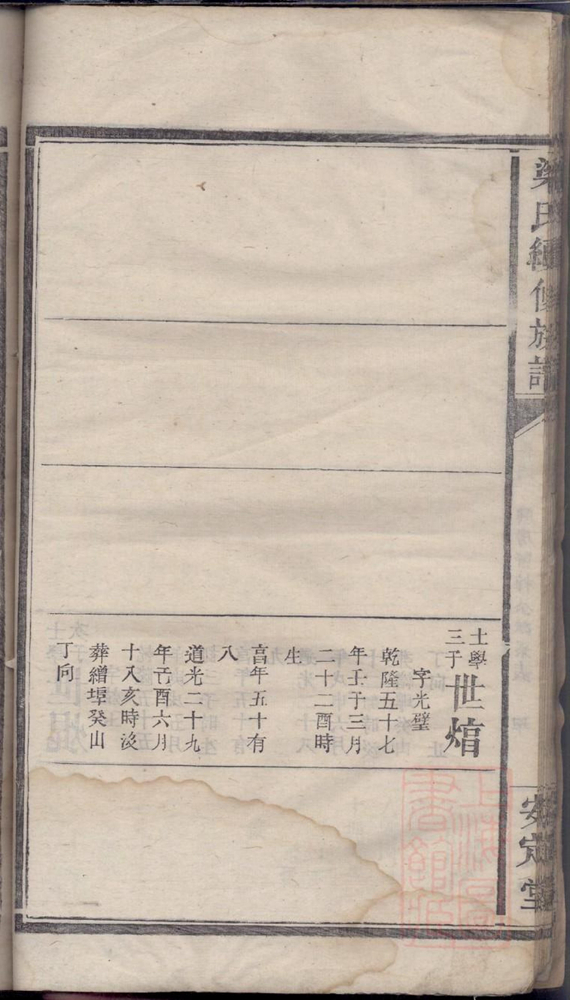 士學
三子
世熺
字光璧
乾隆五十七
年壬子三月
二十二酉時
生
享年五十有
八
道光二十九
年己酉六月
十八亥時没
葬繒埠癸山
丁向
梁氏續修族譜
安定堂